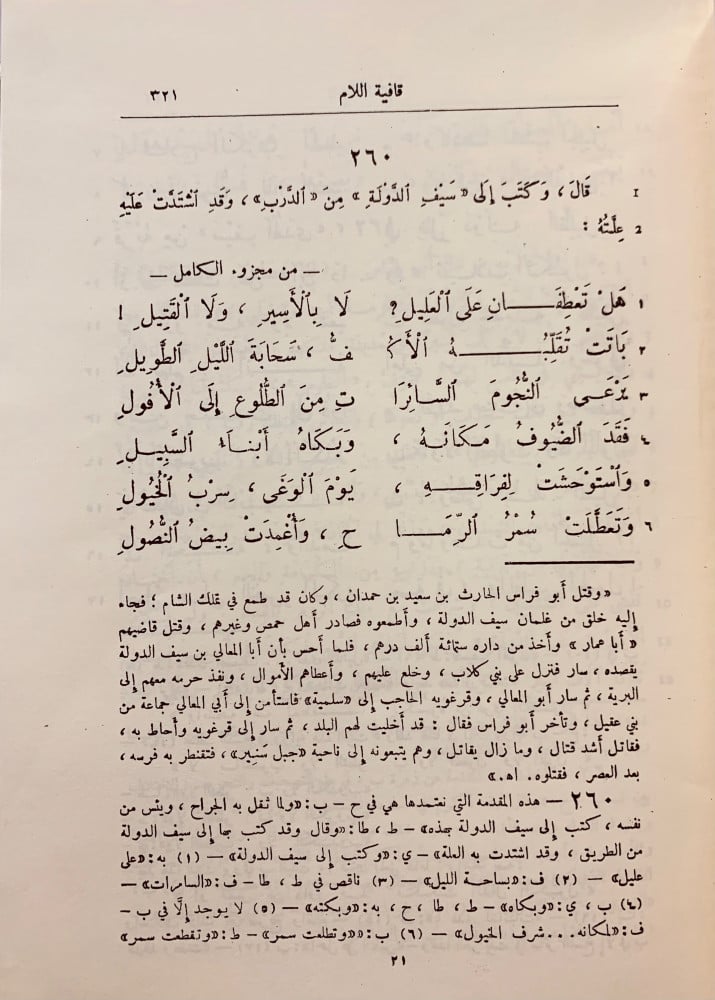 قافية اللام ٣٢١
٢٦٠
1 قَالَ ، وَكَتَبَ إِلَى «سَيْفِ الدَّوْلَةِ» مِنَ «الدَّرْبِ» ، وَقَدِ ٱشْتَدَّتْ عَلَيْهِ
2 عِلَّتُهُ :
— من مجزوء الكامل —
١ هَلْ تَعْطِفَــانِ عَلَى ٱلْعَلِيلِ؟ لَا بِٱلْأَسِيرِ ، وَلَا ٱلْقَتِيلِ !
٢ بَاتَتْ تُقَلِّبُــهُ ٱلْأَكُـ ـفُّ ، سَحَابَةَ اللَّيْلِ الطَّوِيلِ
٣ يَرْعَــى ٱلنُّجُومَ ٱلسَّـائِرَا تِ مِنَ الطُّلُوعِ إِلَى ٱلْأُفُولِ
٤ فَقَدَ ٱلضُّيُوفُ مَكَانَـهُ ، وَبَكَاهُ أَبْنَـاءُ السَّبِيـلِ
٥ وَٱسْتَوْحَشَتْ لِفِرَاقِــهِ ، يَوْمَ ٱلْوَغَى ، سِرْبُ ٱلْخُيُولِ
٦ وَتَعَطَّلَتْ سُمْرُ ٱلرِّمَــا حِ ، وَأُغْمِدَتْ بِيضُ ٱلنُّصُولِ
«وقتل أبو فراس الحارث بن سعيد بن حمدان ، وكان قد طمع في تملك الشام ؛ فجاء
إليه خلق من غلمان سيف الدولة ، وأطمعوه فصادر أهل حمص وغيرهم ، وقتل قاضيهم
«أبا عمار» وأخذ من داره ستمائة ألف درهم ، فلما أحس بأن أبا المعالي بن سيف الدولة
يقصده ، سار فنزل على بني كلاب ، وخلع عليهم ، وأعطاهم الأموال ، ونفذ حرمه معهم إلى
البرية ، ثم سار أبو المعالي ، وقرغويه الحاجب إلى «سلمية» فاستأمن إلى أبي المعالي جماعة من
بني عقيل ، وتأخر أبو فراس فقال : قد أخليت لهم البلد ، ثم سار إلى قرغويه وأحاط به ،
فقاتل أشد قتال ، وما زال يقاتل ، وهم يتبعونه إلى ناحية «جبل سَنِير» ، فتقنطر به فرسه ،
بعد العصر ، فقتلوه. اهـ.»
٢٦٠ — هذه المقدمة التي نعتمدها هي في ح – ب : «ولما ثقل به الجراح ، ويئس من
نفسه ، كتب إلى سيف الدولة بهذه» – ط ، طا : «وقال وقد كتب بها إلى سيف الدولة
من الطريق ، وقد اشتدت به العلة» – ي : «وكتب إلى سيف الدولة» — (١) به : «على
عليل» — (٢) ف : «بساحة الليل» — (٣) ناقص في ط ، طا – ف : «السامرات» —
(٤) ب ، ي : «وبكاه» – ط ، طا ، ح ، به : «وبكته» — (٥) لا يوجد إلّا في ب –
ف : «لمكانه... شرف الخيول» — (٦) ب : ««وتطلعت سمر» – ط : «وتقطعت سمر»
٢١